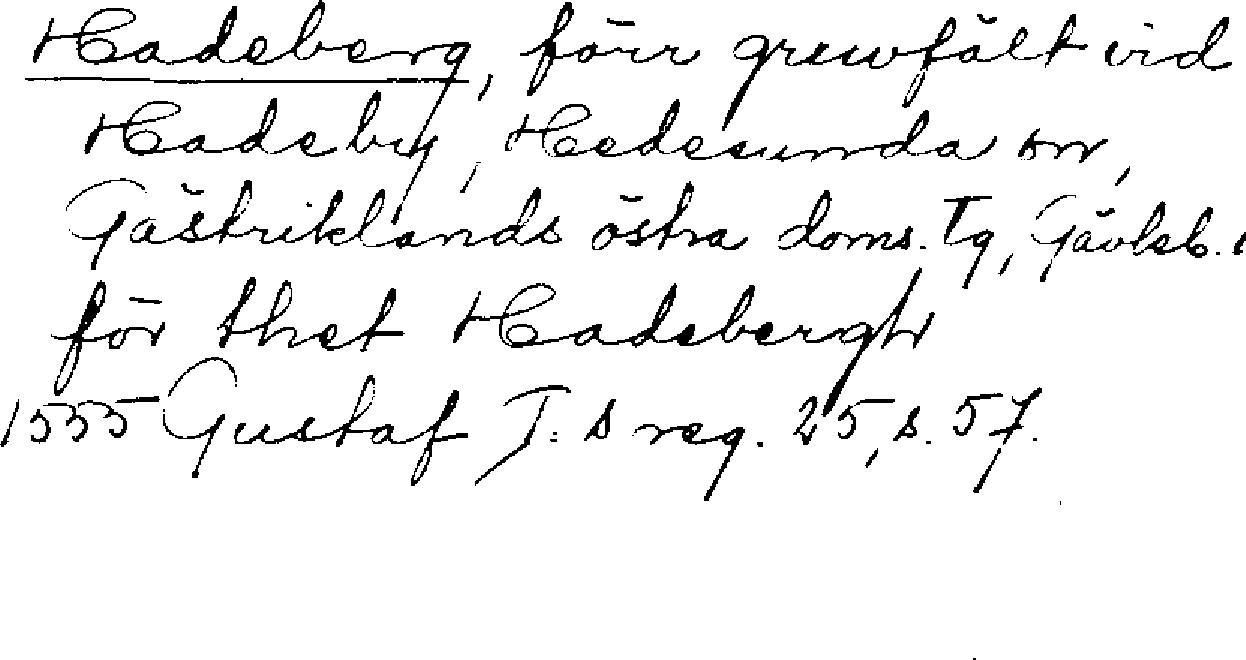 Hadeberg, förr gruvfält vid
Hadeby, Hedesunda sn,
Gästriklands östra doms. Tg, Gävleb.
för thet Hadebergh
1555 Gustaf I:s reg. 25, s. 57.